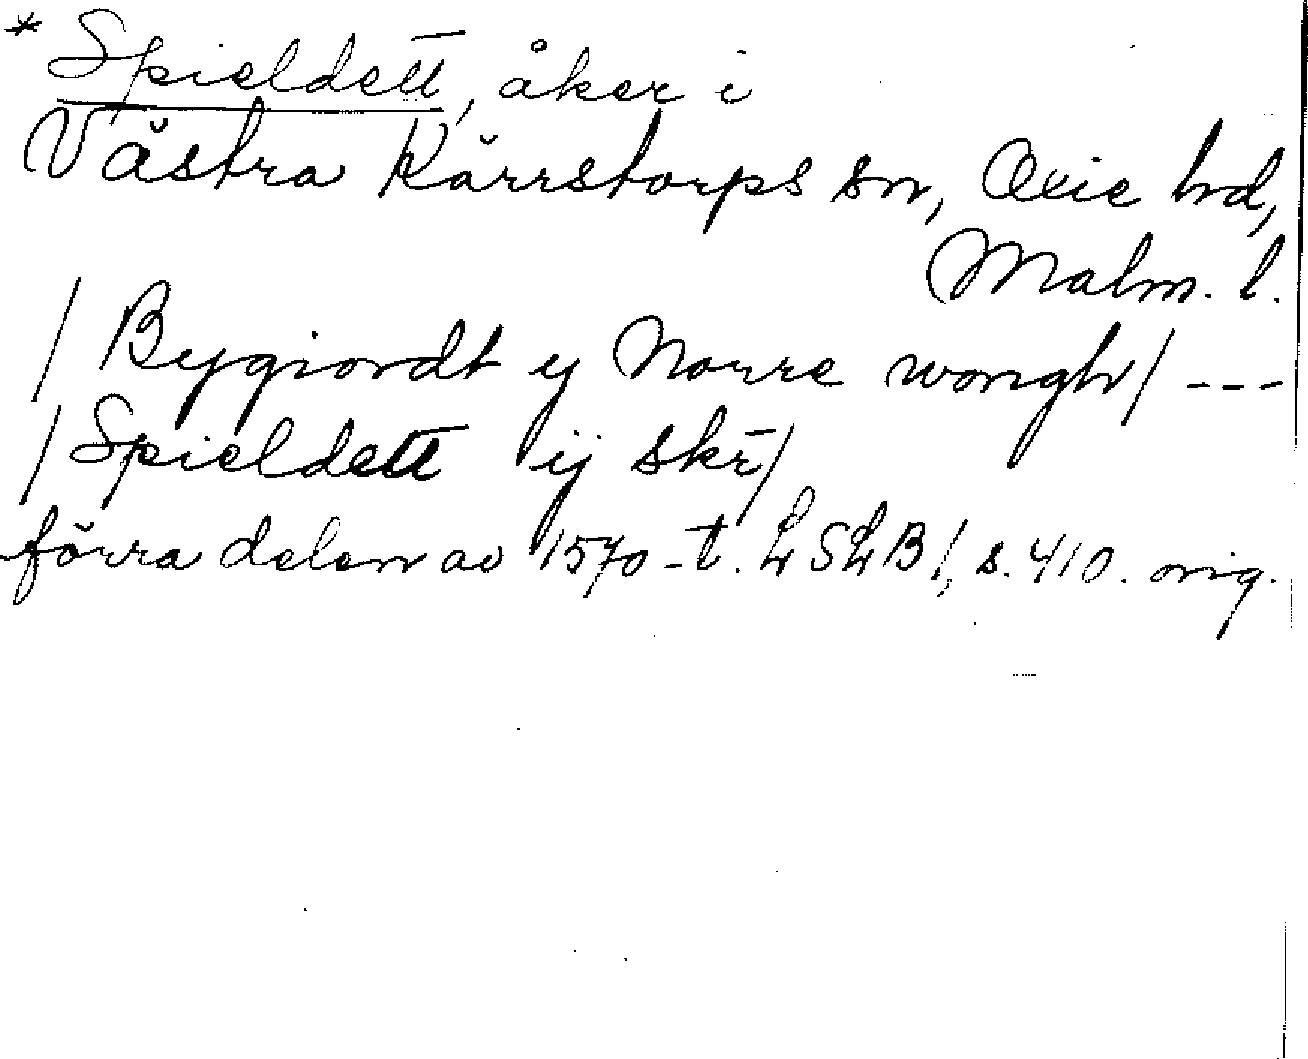 * Spieldett, åker i
Västra Kärrstorps sn, Oxie hd,
Malm. l.
/ Bygiordt y Norre wongh/ ---
/ Spieldett ij skr̄/
förra delen av 1570-t. LSLB/, s. 410. orig.